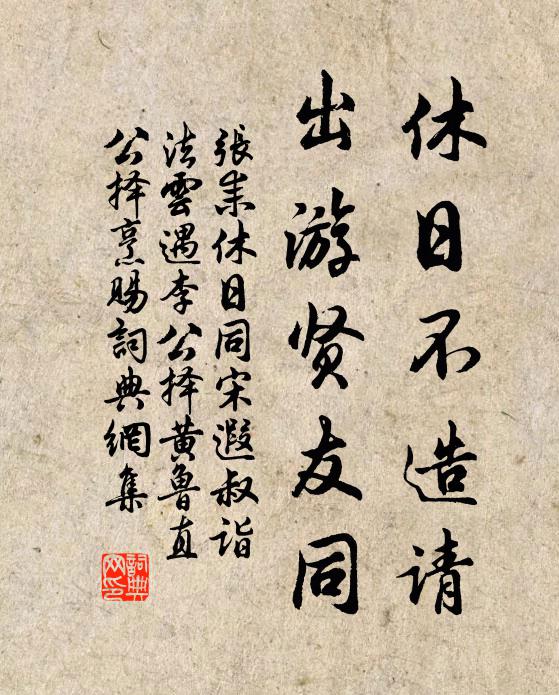 休日不造请
出游贤友同
張耒休日同宋遐叔詣
法雲遇李公择黄魯直
公择烹賜詞典網集
詞典網印